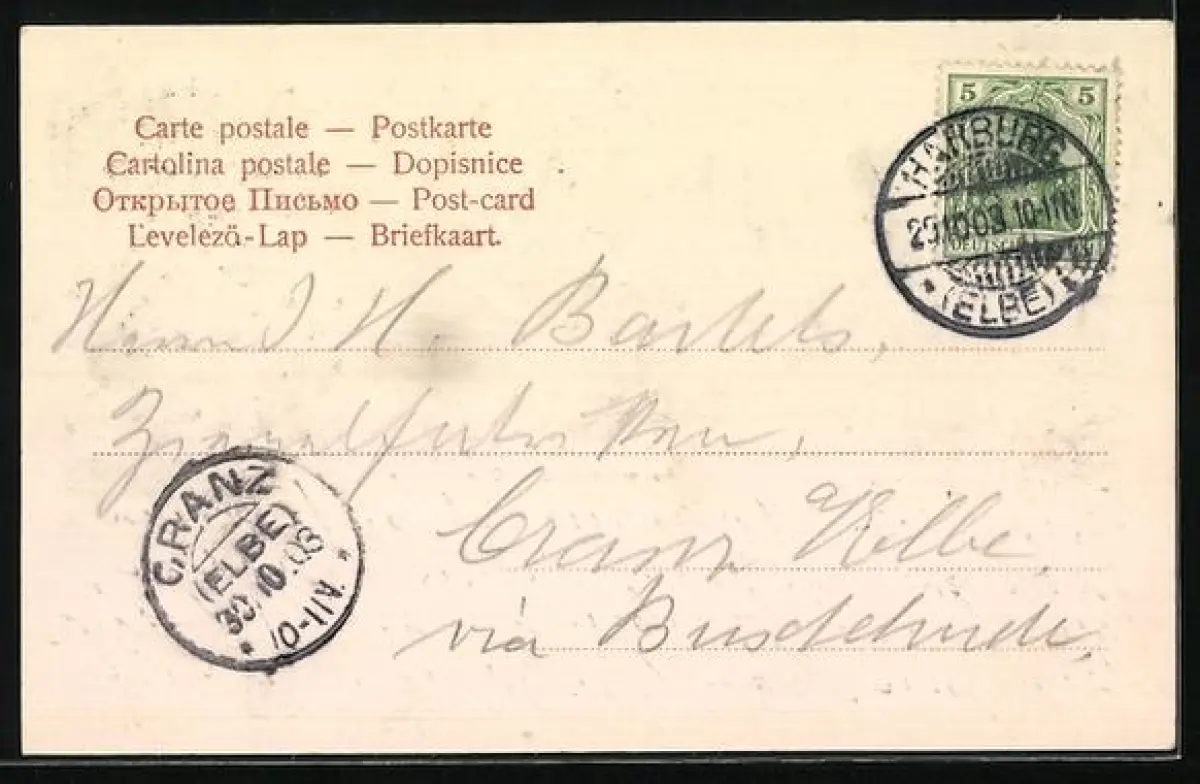 Carte postale — Postkarte
Cartolina postale — Dopisnice
Открытое Письмо — Post-card
Levelező-Lap — Briefkaart.
5 5
HARBURG
29.10.03. 10-11N
* (ELBE) *
Herrn J. H. Bartels,
Cranz
via Buxtehude,
CRANZ
(ELBE)
30.10.03
* 10-11V. *